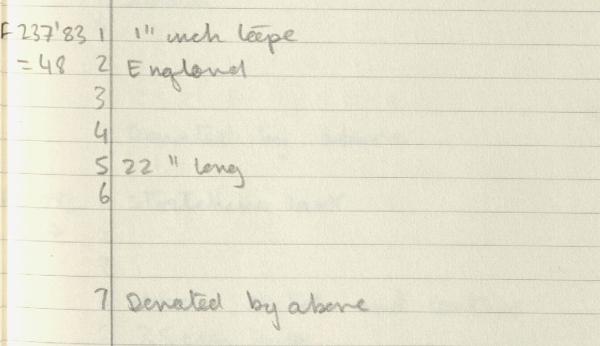 F237'83 1 1" inch tape
=48 2 England
3
4
5 22" long
6
7 Donated by above